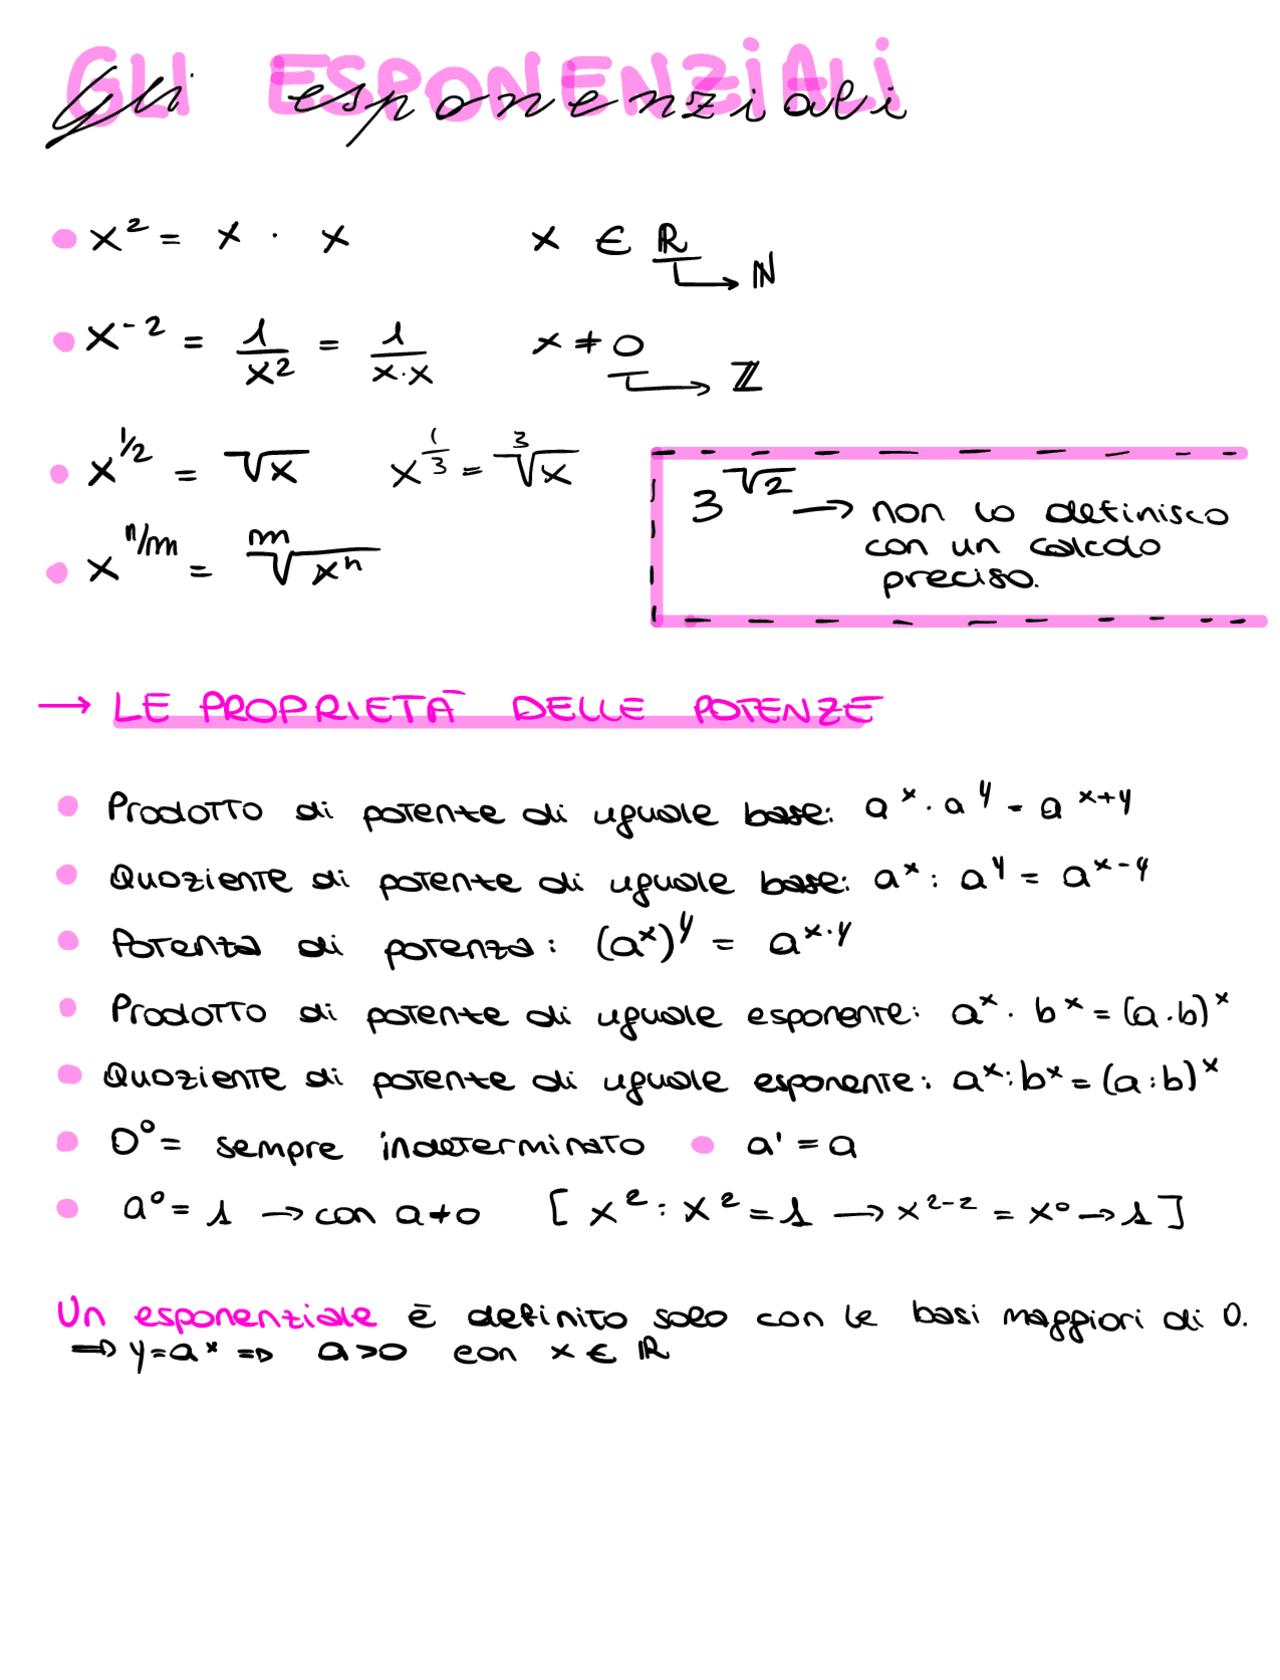 GLI ESPONENZIALI
Gli esponenziali
x² = x · x x ∈ ℝ → ℕ
x⁻² = 1/x² = 1/x·x x ≠ 0 → ℤ
x^1/2 = √x x^1/3 = ³√x
3^√2 → non lo definisco
con un calcolo
preciso.
x^n/m = ᵐ√xⁿ
→ LE PROPRIETÀ DELLE POTENZE
Prodotto di potenze di uguale base: a^x · a^y = a^x+y
Quoziente di potenze di uguale base: a^x : a^y = a^x-y
Potenza di potenza: (a^x)^y = a^x·y
Prodotto di potenze di uguale esponente: a^x · b^x = (a·b)^x
Quoziente di potenze di uguale esponente: a^x : b^x = (a:b)^x
0⁰ = sempre indeterminato a¹ = a
a⁰ = 1 → con a≠0 [x² : x² = 1 → x²⁻² = x⁰ → 1]
Un esponenziale è definito solo con le basi maggiori di 0.
⇒ y=a^x ⇒ a>0 con x ∈ ℝ